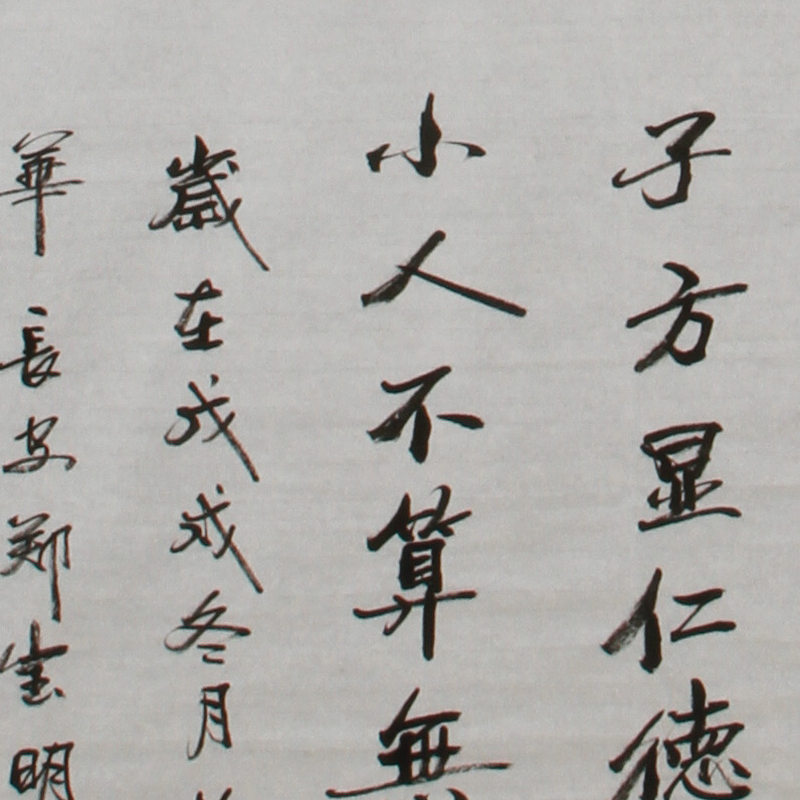 子方显仁德
小人不算無
歲在戊戌冬月
華長安郑宝明